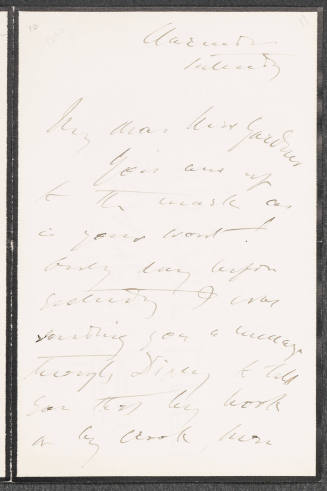 My dear Mrs Gardner
You are up
to the mark as
is your wont!
Only day before
yesterday I was
sending you a message
through Dixey to tell
you that by hook
or by crook, Mrs